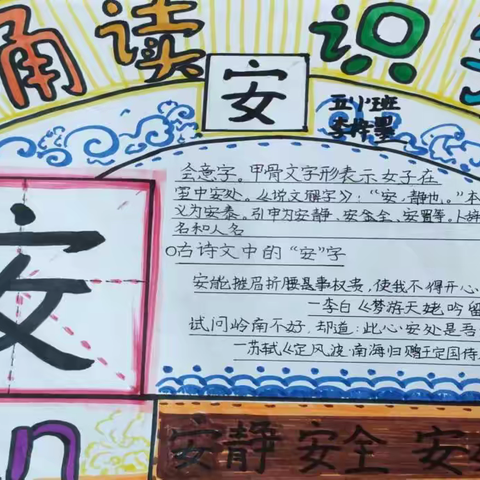 诵读识
安
五(1)班
李梓墨
会意字。甲骨文字形表示女子在
室中安处。《说文解字》:“安,静也。”本
义为安泰。引申为安静、安全、安置等。
名和人名
古诗文中的“安”字
安能摧眉折腰是事权贵,使我不得开心
—李白《梦游天姥吟留
试问岭南不好,却道:此心安处是吾
—苏轼《定风波·南海归赠王定国侍
安
安静 安全 安
n